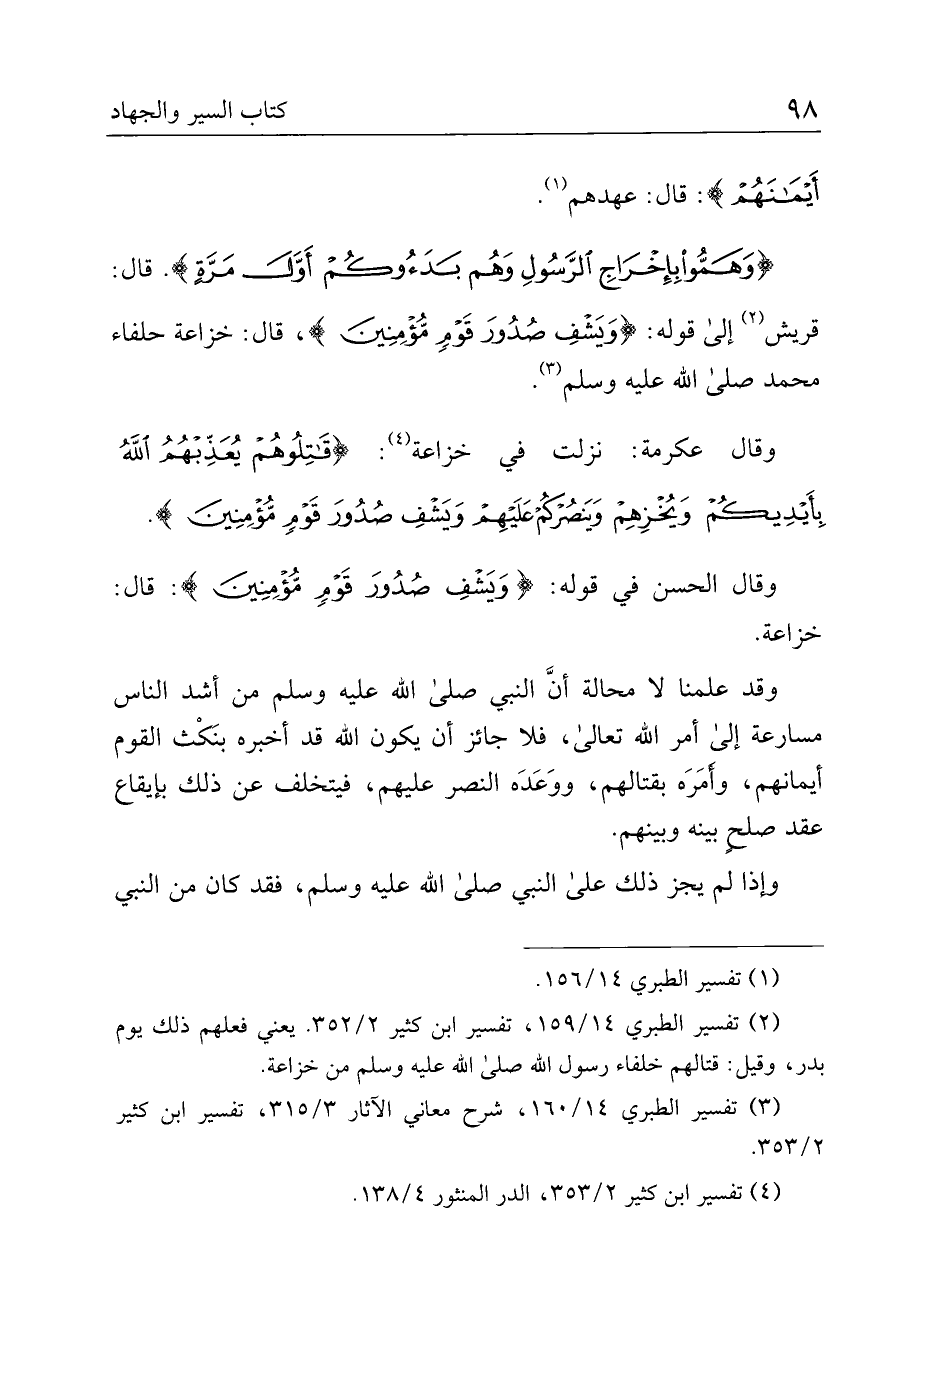 ٩٨ كتاب السير والجهاد
أَيْمَـٰنَهُمْ ﴾: قال: عهدهم(١).
﴿وَهَمُّوا۟ بِإِخْرَاجِ ٱلرَّسُولِ وَهُم بَدَءُوكُمْ أَوَّلَ مَرَّةٍ ﴾. قال:
قريش(٢) إلىٰ قوله: ﴿وَيَشْفِ صُدُورَ قَوْمٍ مُّؤْمِنِينَ ﴾، قال: خزاعة حلفاء
محمد صلىٰ الله عليه وسلم(٣).
وقال عكرمة: نزلت في خزاعة(٤): ﴿قَـٰتِلُوهُمْ يُعَذِّبْهُمُ ٱللَّهُ
بِأَيْدِيكُمْ وَيُخْزِهِمْ وَيَنصُرْكُمْ عَلَيْهِمْ وَيَشْفِ صُدُورَ قَوْمٍ مُّؤْمِنِينَ ﴾.
وقال الحسن في قوله: ﴿وَيَشْفِ صُدُورَ قَوْمٍ مُّؤْمِنِينَ ﴾: قال:
خزاعة.
وقد علمنا لا محالة أنَّ النبي صلىٰ الله عليه وسلم من أشد الناس
مسارعة إلىٰ أمر الله تعالىٰ، فلا جائز أن يكون الله قد أخبره بنَكْث القوم
أيمانهم، وأَمَرَه بقتالهم، ووَعَدَه النصر عليهم، فيتخلف عن ذلك بإيقاع
عقد صلحٍ بينه وبينهم.
وإذا لم يجز ذلك علىٰ النبي صلىٰ الله عليه وسلم، فقد كان من النبي
(١) تفسير الطبري ١٤/١٥٦.
(٢) تفسير الطبري ١٤/١٥٩، تفسير ابن كثير ٢/٣٥٢. يعني فعلهم ذلك يوم
بدر، وقيل: قتالهم خلفاء رسول الله صلىٰ الله عليه وسلم من خزاعة.
(٣) تفسير الطبري ١٤/١٦٠، شرح معاني الآثار ٣/٣١٥، تفسير ابن كثير
٢/٣٥٣.
(٤) تفسير ابن كثير ٢/٣٥٣، الدر المنثور ٤/١٣٨.